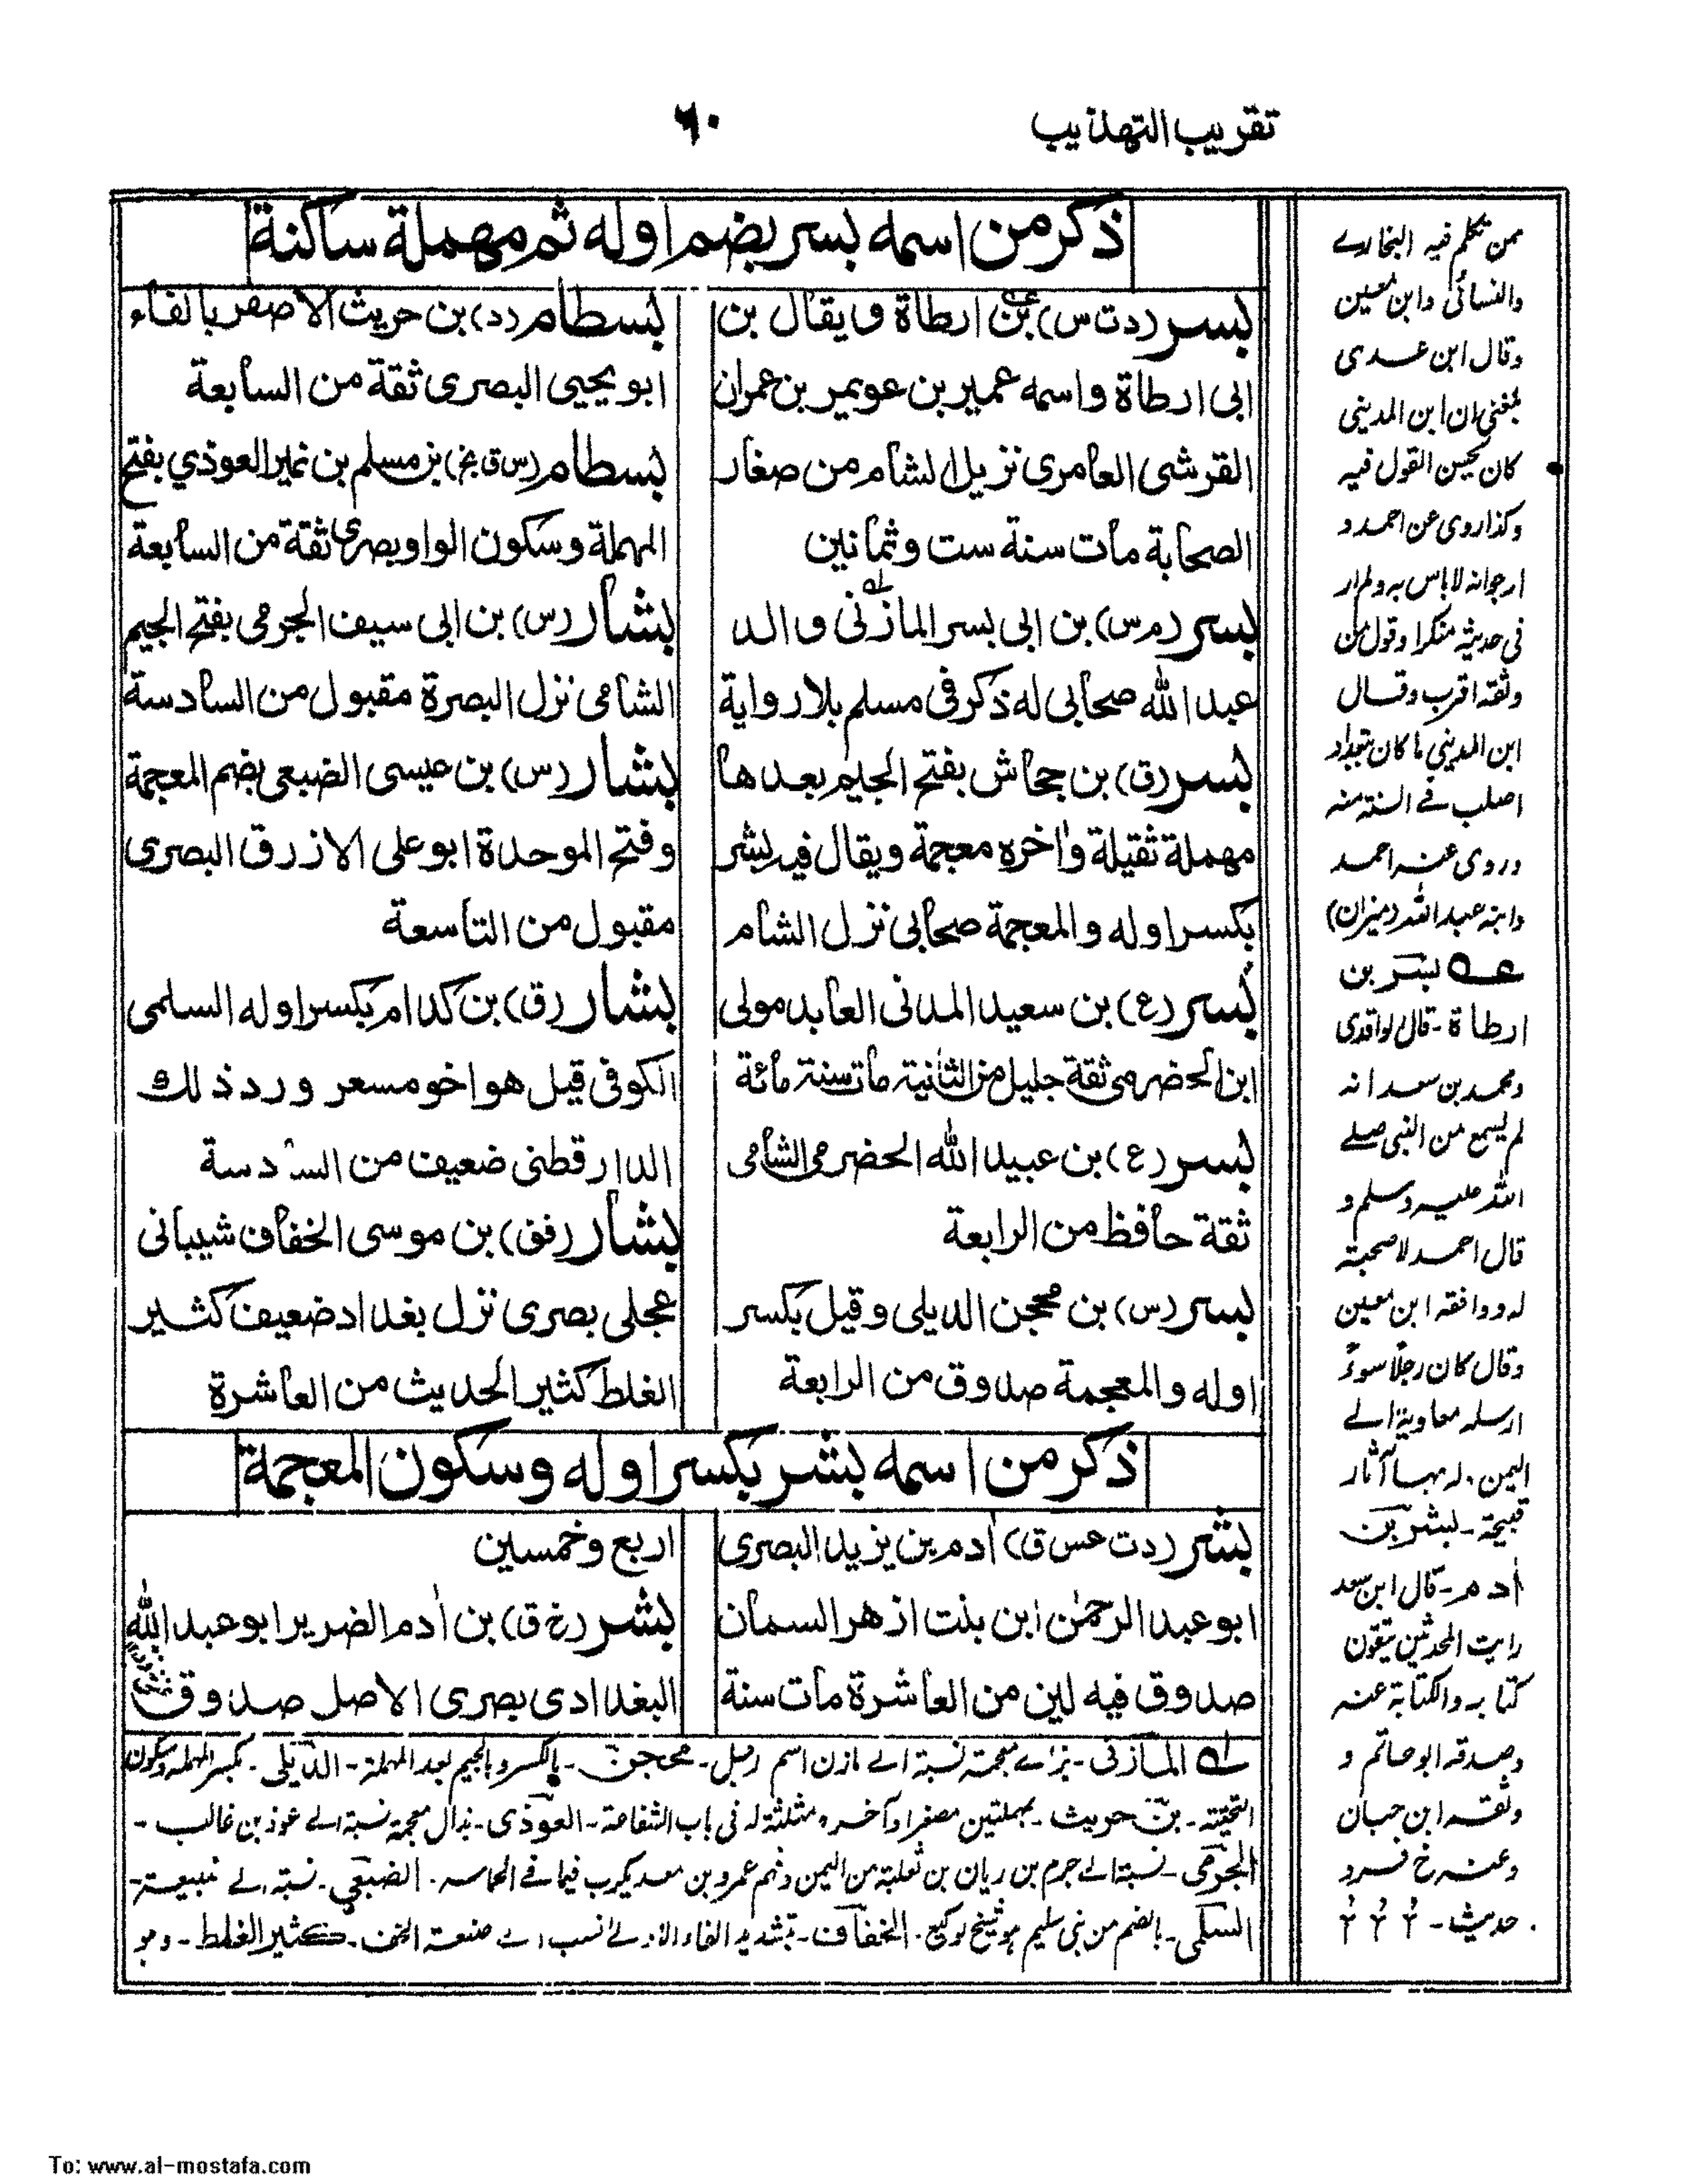 تقريب التهذيب
٦٠
ذكر من اسمه بسر بضم اوله ثم مهملة ساكنة
بسر (د ت س) بن ارطاة و يقال بن
ابى ارطاة واسمه عمير بن عويمر بن عمران
القرشى العامرى نزيل الشام من صغار
الصحابة مات سنة ست وثمانين
بسر (م س) بن ابى بسر المازنى والد
عبد الله صحابى له ذكر فى مسلم بلا رواية
بسر (ق) بن جحاش بفتح الجيم بعدها
مهملة ثقيلة واٰخره معجمة ويقال فيه بشر
بكسر اوله والمعجمة صحابى نزل الشام
بسر (ع) بن سعيد المدنى العابد مولى
ابن الحضرمى ثقة جليل من الثانية مات سنة مائة
بسر (ع) بن عبيد الله الحضرمى الشامى
ثقة حافظ من الرابعة
بسر (س) بن محجن الديلى وقيل بكسر
اوله والمعجمة صدوق من الرابعة
بسطام (د) بن حريث الاصفر بالفاء
ابو يحيى البصرى ثقة من السابعة
بسطام (س ق بخ) بن مسلم بن نمير العوذي بفتح
المهملة وسكون الواو بصرى ثقة من السابعة
بشار (س) بن ابى سيف الجرمى بفتح الجيم
الشامى نزل البصرة مقبول من السادسة
بشار (س) بن عيسى الضبعى بضم المعجمة
وفتح الموحدة ابو على الازرق البصرى
مقبول من التاسعة
بشار (ق) بن كدام بكسر اوله السلمى
الكوفى قيل هو اخو مسعر ورد ذلك
الدارقطنى ضعيف من السادسة
بشار (فق) بن موسى الخفاف شيبانى
عجلى بصرى نزل بغداد ضعيف كثير
الغلط كثير الحديث من العاشرة
ذكر من اسمه بشر بكسر اوله وسكون المعجمة
بشر (د ت عس ق) اٰدم بن يزيد البصرى
ابو عبد الرحمٰن ابن بنت ازهر السمان
صدوق فيه لين من العاشرة مات سنة
اربع وخمسين
بشر (خ ق) بن اٰدم الضرير ابو عبد الله
البغدادى بصرى الاصل صدوق
المازنى - بزاے معجمة نسبة الے مازن اسم رجل - محجن - بالكسر و بالجيم بعد المهملة - الديلى - بكسر المهملة وسكون
التحتية - بن حريث - بمهملتين مصغرا وآخره مثلثة له فى باب الشفاعة - العوذى - بذال معجمة نسبة الے عوذ بن غالب -
الجرمى - نسبة الے جرم بن ريان بن ثعلبة من اليمن ومنهم عمرو بن معديكرب فيما فے الحماسه - الضبعي - نسبة الے ضبيعة -
السلمى - بالضم من بنى سليم هو شيخ لوكيع - الخفاف - بتشديد الفاء الاولے نسب الے صنعة الخف - كثير الغلط - وهو
ممن تكلم فيه البخارے
والنسائى وابن معين
وقال ابن عدى
بلغنى ان ابن المدينى
كان يحسن القول فيه
وكذا روى عن احمد و
ارجو انه لا باس به ولم ار
فى حديثه منكرا وقول من
وثقه اقرب وقال
ابن المدينى ما كان ببغداد
اصلب فے السنة منه
وروى عنه احمد
وابنه عبد الله (ميزان)
عه بسر بن
ارطاة - قال الواقدى
ومحمد بن سعد انه
لم يسمع من النبى صلے
الله عليه وسلم و
قال احمد لا صحبة
له ووافقه ابن معين
وقال كان رجلا سوء
ارسله معاوية الے
اليمن . له بها آثار
قبيحة - بشر بن
اٰدم - قال ابن سعد
رايت المحدثين يتقون
كتابه والكتابة عنه
وصدقه ابو حاتم و
وثقه ابن حبان
وعنه خ فرد
حديث -
To: www.al-mostafa.com